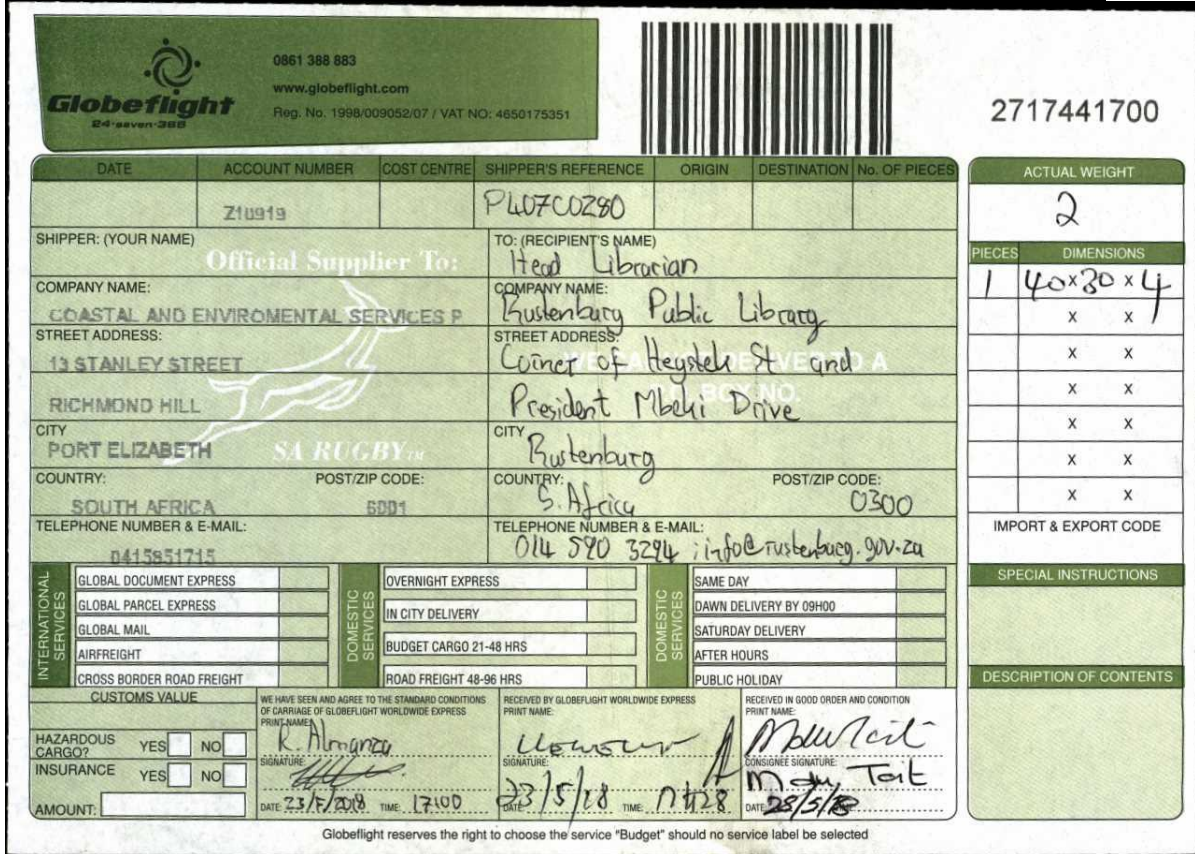 Globeflight
24-seven-388
0861 388 883
www.globeflight.com
Reg. No. 1998/009052/07 / VAT NO: 4650175351
2717441700
DATE ACCOUNT NUMBER COST CENTRE SHIPPER'S REFERENCE ORIGIN DESTINATION No. OF PIECES
Z10919 P407C0280
ACTUAL WEIGHT
2
PIECES DIMENSIONS
1 40 x 30 x 4
x x
x x
x x
x x
x x
x x
IMPORT & EXPORT CODE
SPECIAL INSTRUCTIONS
DESCRIPTION OF CONTENTS
SHIPPER: (YOUR NAME)
Official Supplier To:
COMPANY NAME:
COASTAL AND ENVIROMENTAL SERVICES P
STREET ADDRESS:
13 STANLEY STREET
RICHMOND HILL
CITY
PORT ELIZABETH
SA RUGBY TM
COUNTRY: POST/ZIP CODE:
SOUTH AFRICA 6001
TELEPHONE NUMBER & E-MAIL:
0415851715
TO: (RECIPIENT'S NAME)
Head Librarian
COMPANY NAME:
Rustenburg Public Library
STREET ADDRESS:
Corner of Heystek St and
President Mbeki Drive
BOX NO.
CITY
Rustenburg
COUNTRY: POST/ZIP CODE:
S. Africa 0300
TELEPHONE NUMBER & E-MAIL:
014 590 3294 ; info@rustenburg.gov.za
INTERNATIONAL SERVICES
GLOBAL DOCUMENT EXPRESS
GLOBAL PARCEL EXPRESS
GLOBAL MAIL
AIRFREIGHT
CROSS BORDER ROAD FREIGHT
DOMESTIC SERVICES
OVERNIGHT EXPRESS
IN CITY DELIVERY
BUDGET CARGO 21-48 HRS
ROAD FREIGHT 48-96 HRS
DOMESTIC SERVICES
SAME DAY
DAWN DELIVERY BY 09H00
SATURDAY DELIVERY
AFTER HOURS
PUBLIC HOLIDAY
CUSTOMS VALUE
HAZARDOUS CARGO? YES NO
INSURANCE YES NO
AMOUNT:
WE HAVE SEEN AND AGREE TO THE STANDARD CONDITIONS
OF CARRIAGE OF GLOBEFLIGHT WORLDWIDE EXPRESS
PRINT NAME:
R. Almanza
SIGNATURE:
DATE: 23/5/2018 TIME: 17:00
RECEIVED BY GLOBEFLIGHT WORLDWIDE EXPRESS
PRINT NAME:
SIGNATURE:
DATE: 23/5/18 TIME:
RECEIVED IN GOOD ORDER AND CONDITION
PRINT NAME:
CONSIGNEE SIGNATURE:
Tait
DATE: 28/5/18
Globeflight reserves the right to choose the service "Budget" should no service label be selected